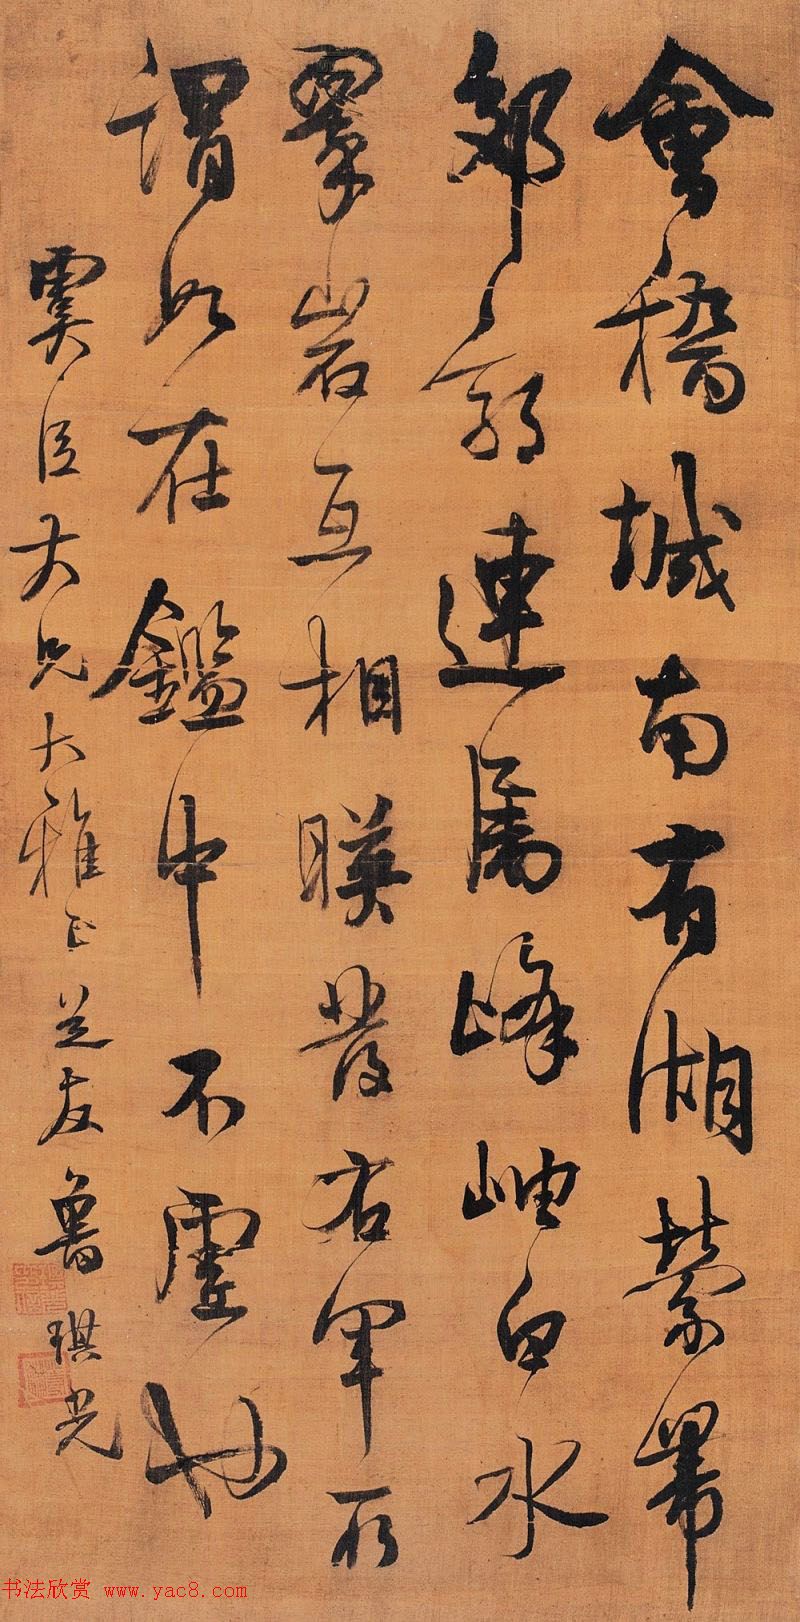 會稽城南有湖縈帶
郊郭連屬峰岫白水
翠岩互相暎發右軍所
謂如在鑑中不虛也
虞臣大兄大雅正芝友魯琪光
书法欣赏 www.yac8.com